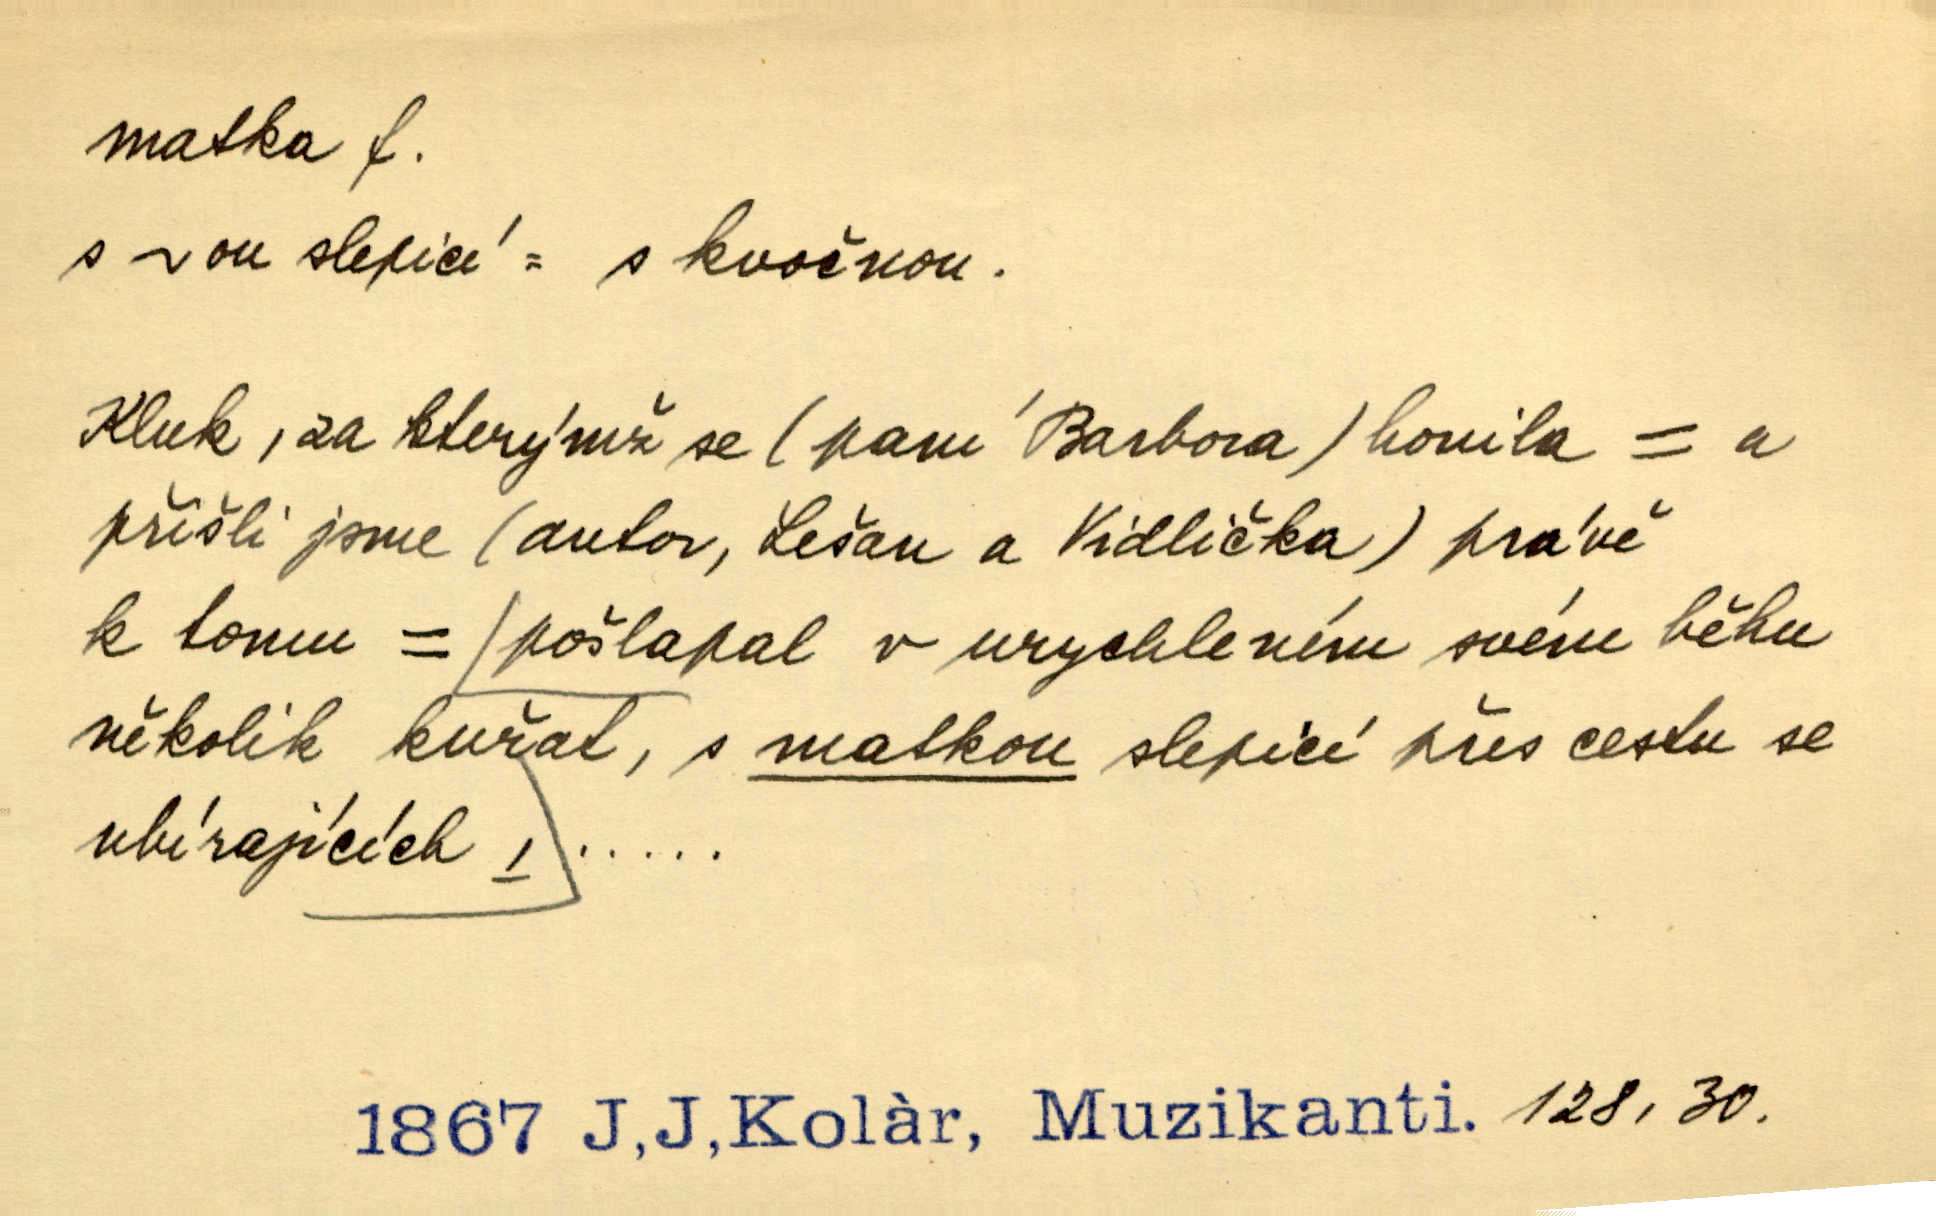 matka f.
s ~ou slepicí = s kvočnou.
Kluk, za kterýmž se (paní Barbora) honila = a
přišli jsme (autor, Lešan a Vidlička) právě
k tomu = pošlapal v urychleném svém běhu
několik kuřat, s matkou slepicí přes cestu se
ubírajících , .....
1867 J,J,Kolàr, Muzikanti. 128, 30.